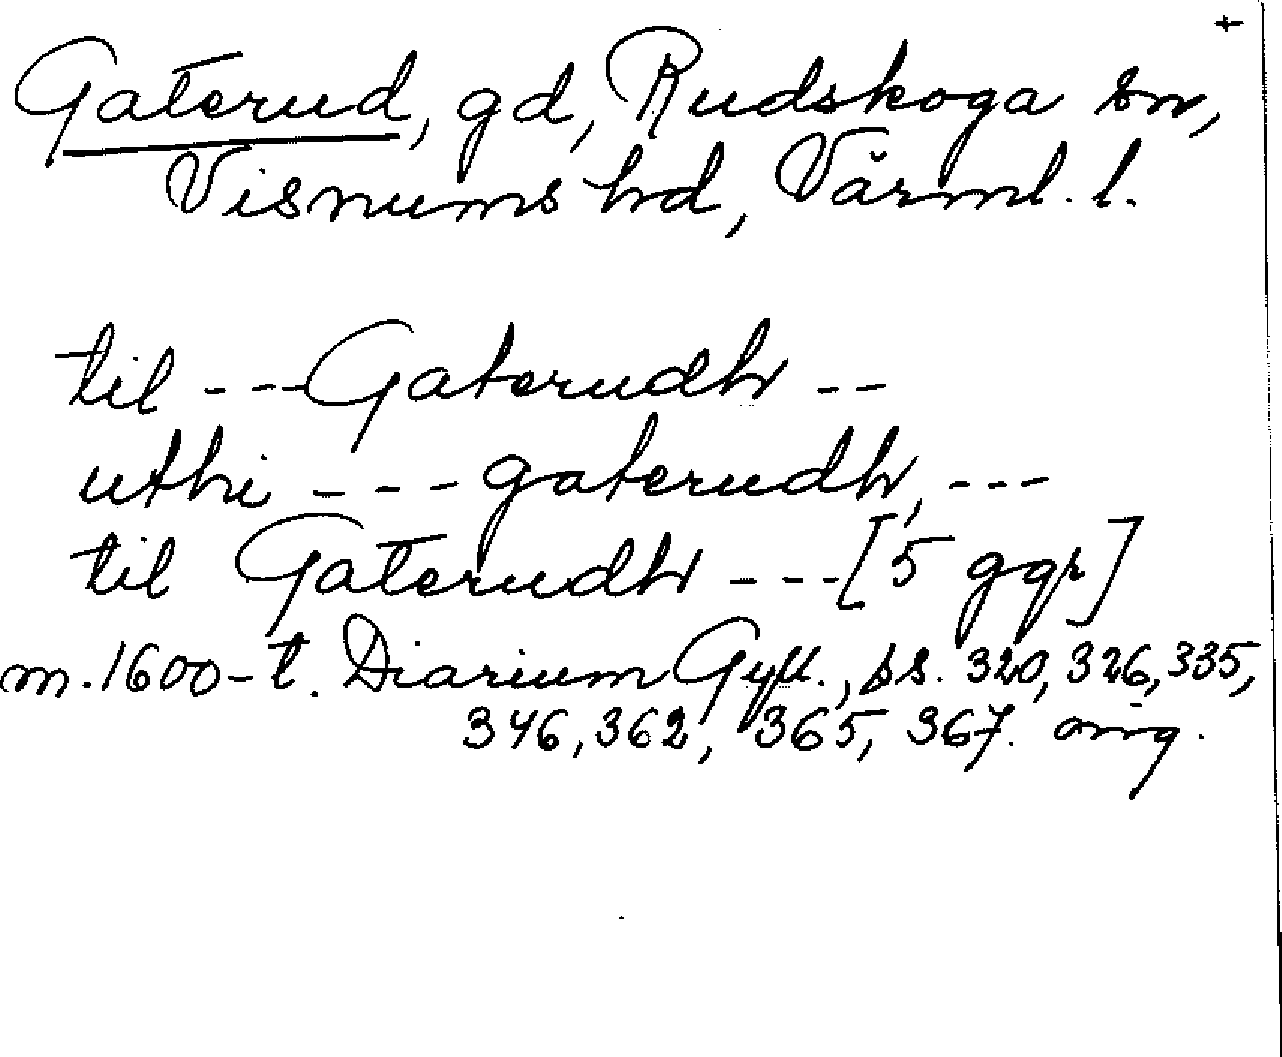 +
Gaterud, gd, Rudskoga sn,
Visnums hd, Värml. l.
til - - - Gaterudh - -
uthi - - - gaterudh, - - -
til Gaterudh - - - [5 ggr]
m. 1600-t. Diarium Gyll., ss. 320, 326, 335,
346, 362, 365, 367. orig.